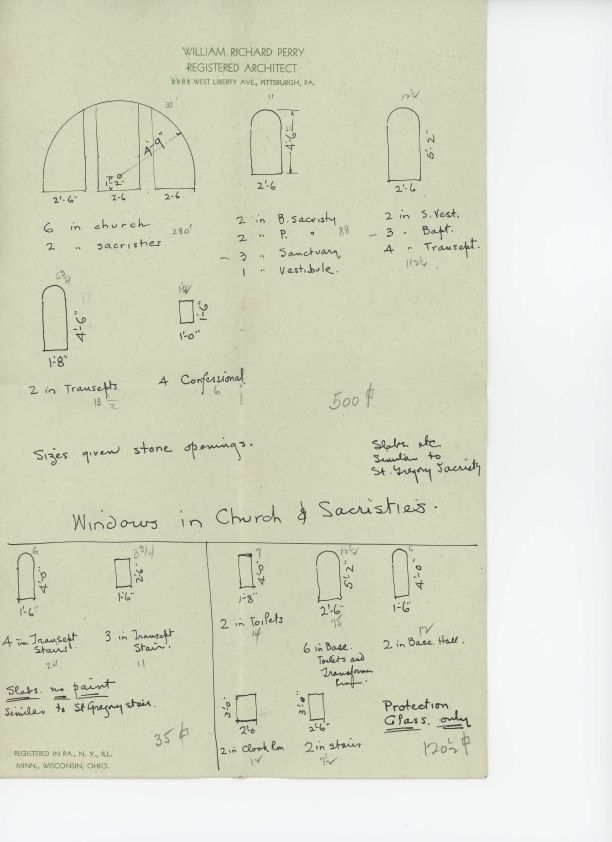 WILLIAM RICHARD PERRY
REGISTERED ARCHITECT
WEST LIBERTY AVE., PITTSBURGH, PA.
35'
4'-9"
1'-2"
2'-6"
2-6
2-6
6 in church
2 " sacristies
280'
11
4'-6"
2'-6
2 in B. Sacristy
2 " P. "
88
3 " Sanctuary
1 " Vestibule.
12½
5'-2"
2'-6
2 in S. Vest.
3 " Bapt.
4 " Transept.
112½
6¾
4'-6"
1'-8"
2 in Transepts
13½
1½
1'-6"
1'-0"
4 Confessional
6
500
Sizes given stone openings.
Slabs etc
Similar to
St. Gregory Sacristy
Windows in Church & Sacristies.
6
4'-0"
1'-6"
4 in Transept
Stairs.
24
3 3/4
2'-6"
1'-6"
3 in Transept
Stair.
11
Slabs. no paint
Similar to St Gregory stair.
35
7
4'-0"
1'-8"
2 in Toilets
14
12½
5'-2"
2'-6"
75
6 in Base.
Toilets and
Transformer
Rm.
6
4'-0"
1'-6"
12
2 in Base Hall.
3'-0"
2'-0
2 in Cloak Rm
12
3'-0"
2'-6"
2 in stairs
Protection
Glass. only
120½
REGISTERED IN PA., N. Y., ILL.
MINN., WISCONSIN, OHIO.